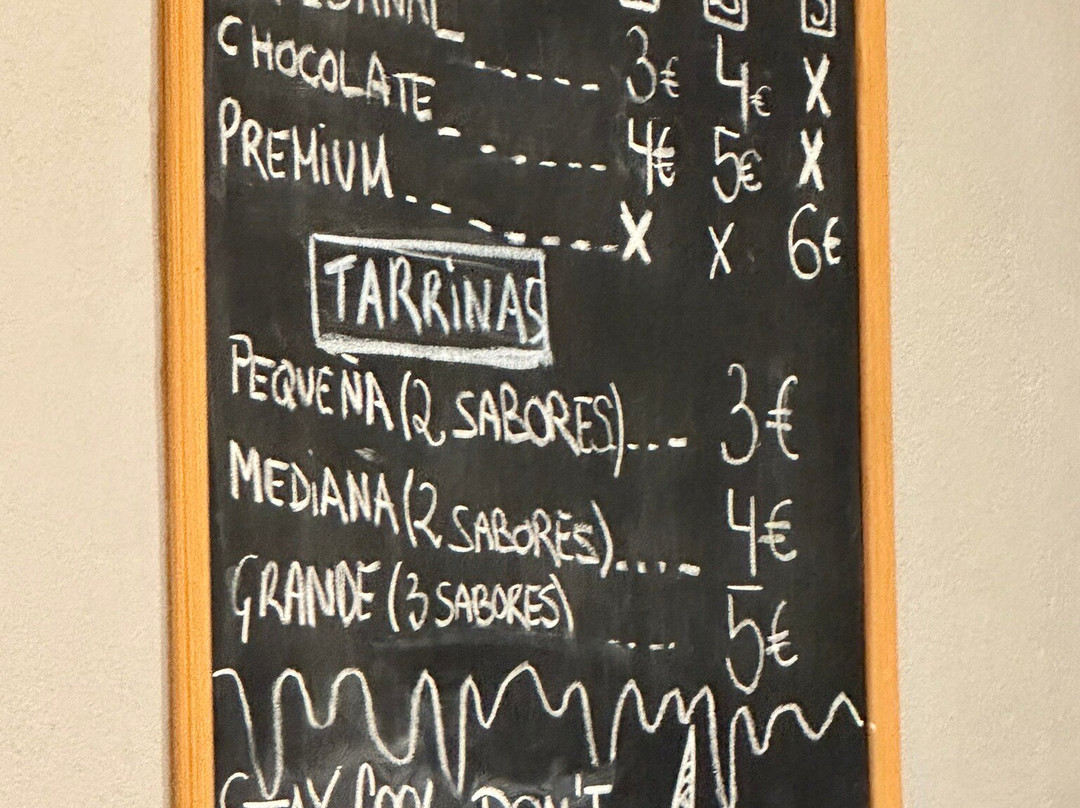 ESANAL ------ 3€ 4€ X
CHOCOLATE ------ 4€ 5€ X
PREMiUM -------- X X 6€
TARRiNAS
PEQUEÑA (2 SABORES)... 3€
MEDiANA (2 SABORES).... 4€
GRANDE (3 SABORES) .... 5€
STAY COOL DON'T